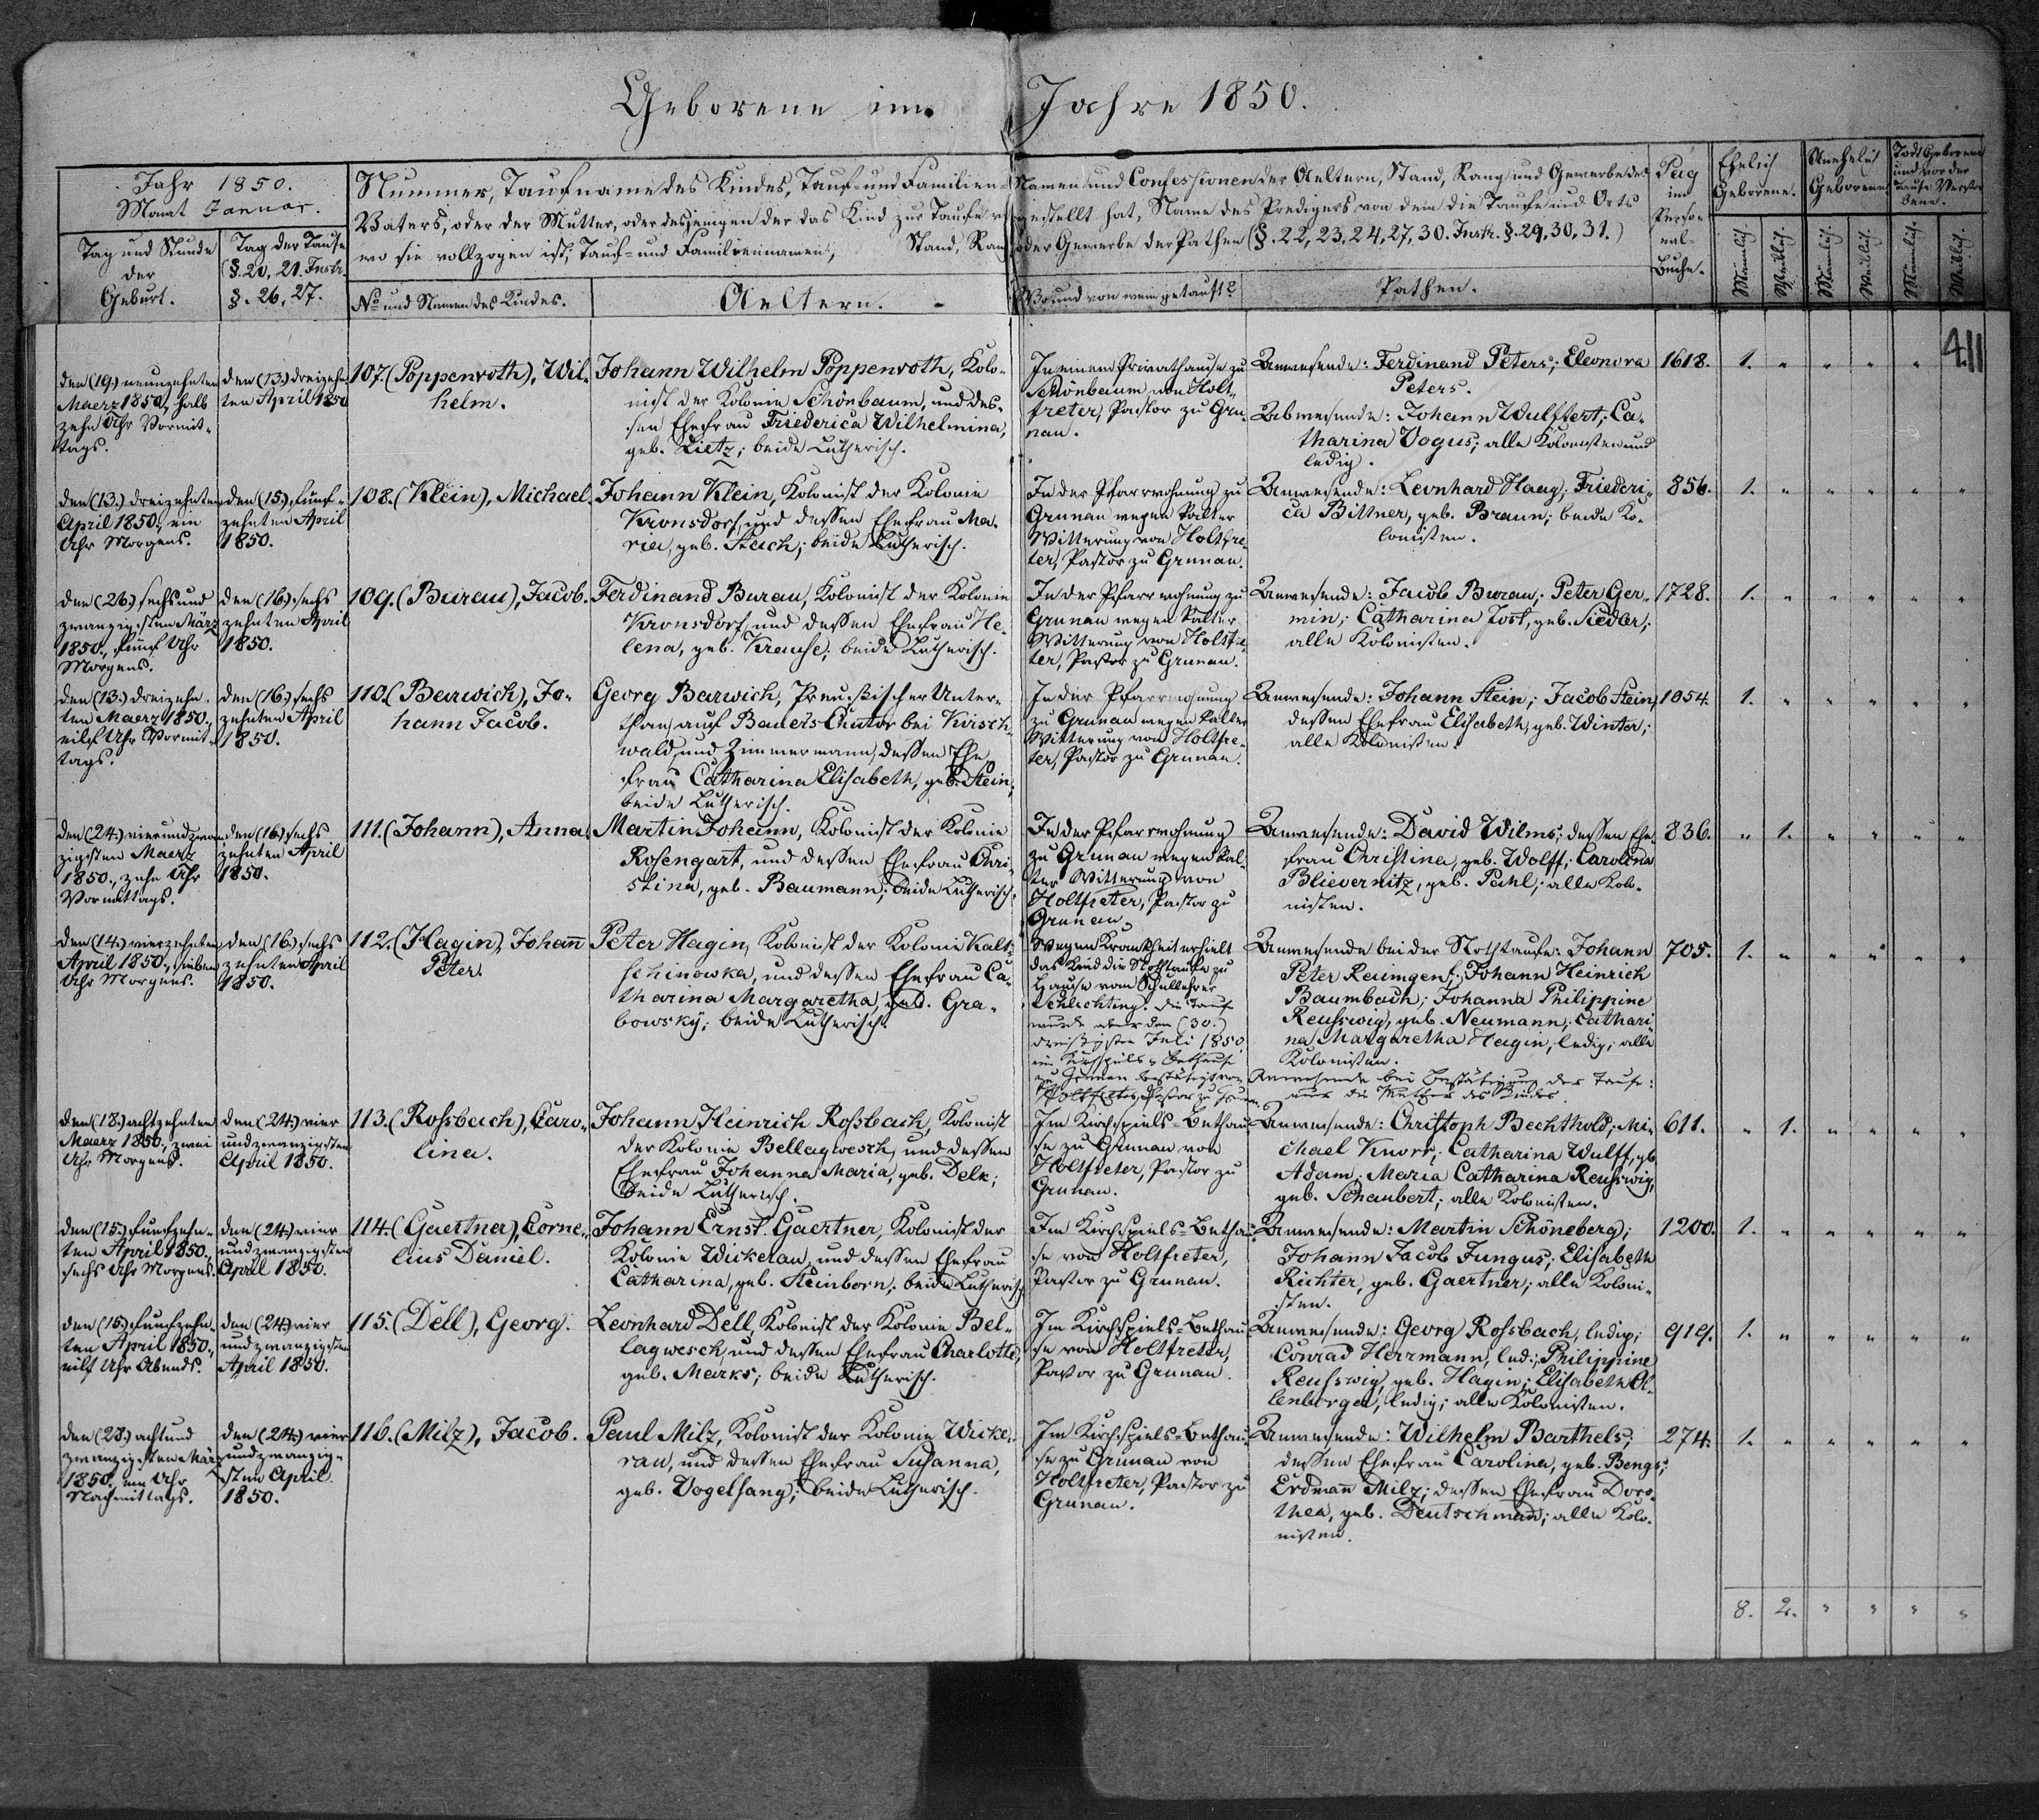 Geborene im Jahre 1850.
Jahr 1850.
Monat Januar.
Tag und Stunde
der
Geburt.
Tag der Taufe
(§. 20, 21. Instr.
§. 26, 27.
Nummer, Taufname des Kindes, Tauf- und Familien-Namen und Confessionen der Aeltern, Stand, Rang und Gewerbe des
Vaters, oder der Mutter, oder desjenigen der das Kind zur Taufe vorgestellt hat, Name des Predigers von dem die Taufe und Orts
wo sie vollzogen ist, Tauf- und Familiennamen, Stand, Rang oder Gewerbe der Pathen (§. 22, 23, 24, 27, 30. Instr. §. 29, 30, 31.)
No und Namen des Kindes.
Aeltern.
Wo und von wem getauft?
Pathen.
Pag
im
Perso-
nal-
Buche.
Ehelich
Geborene.
Unehelich
Geborene.
Todt Geborene
und vor der
Taufe Verstor-
bene.
Männlich.
Weiblich.
Männlich.
Weiblich.
Männlich.
Weiblich.
411
den (19.) neunzehnten
Maerz 1850, halb
zehn Uhr Vormit-
tags.
den (13.) dreizehn-
ten April 1850
107. (Poppenroth), Wil-
helm.
Johann Wilhelm Poppenroth, Kolo-
nist der Kolonie Schönbaum, und des-
sen Ehefrau Friederica Wilhelmina,
geb. Lietz; beide Lutherisch.
In einem Privathause zu
Schönbaum von Holt-
freter, Pastor zu Gru-
nau.
Anwesende: Ferdinand Peters; Eleonora
Peters.
Abwesende: Johann Wulffert; Ca-
tharina Vogus; alle Kolonisten und
ledig.
1618. 1. " " " "
den (13.) dreizehnten
April 1850., ein
Uhr Morgens.
den (15.) fünf-
zehnten April
1850.
108. (Klein), Michael.
Johann Klein, Kolonist der Kolonie
Kronsdorf, und dessen Ehefrau Ma-
ria, geb. Stach; beide Lutherisch.
In der Pfarrwohnung zu
Grunau wegen kalter
Witterung von Holtfre-
ter, Pastor zu Grunau.
Anwesende: Leonhard Haag; Friederi-
ca Bittner, geb. Braun; beide Ko-
lonisten.
856. 1. " " " " "
den (26.) sechs und
zwanzigsten März
1850., fünf Uhr
Morgens.
den (16.) sechs
zehnten April
1850.
109. (Burau), Jacob.
Ferdinand Burau, Kolonist der Kolonie
Kronsdorf, und dessen Ehefrau He-
lena, geb. Krause; beide Lutherisch.
In der Pfarrwohnung zu
Grunau wegen kalter
Witterung von Holtfre-
ter, Pastor zu Grunau.
Anwesende: Jacob Burau; Peter Ger-
min; Catharina Jost, geb. Siedler;
alle Kolonisten.
1728. 1. " " " " "
den (13.) dreizehn-
ten Maerz 1850.,
eilf Uhr Vormit-
tags.
den (16.) sechs
zehnten April
1850.
110. (Barwich), Jo-
hann Jacob.
Georg Barwich, Preußischer Unter-
than auf Bauers-Chutor bei Kirsch-
wald, und Zimmermann, dessen Ehe-
frau Catharina Elisabeth, geb. Stein;
beide Lutherisch.
In der Pfarrwohnung
zu Grunau wegen kalter
Witterung von Holtfre-
ter, Pastor zu Grunau.
Anwesende: Johann Stein; Jacob Stein,
dessen Ehefrau Elisabeth, geb. Winter;
alle Kolonisten.
1054. 1. " " " " "
den (24.) vierundzwan-
zigsten Maerz
1850., zehn Uhr
Vormittags.
den (16.) sechs
zehnten April
1850.
111. (Johann), Anna.
Martin Johann, Kolonist der Kolonie
Rosengart, und dessen Ehefrau Chri-
stina, geb. Baumann; beide Lutherisch.
In der Pfarrwohnung
zu Grunau wegen kal-
ter Witterung von
Holtfreter, Pastor zu
Grunau.
Anwesende: David Wilms; dessen Ehe-
frau Christina, geb. Wolff; Carolina
Blievernitz, geb. Pahl; alle Kolo-
nisten.
836. " 1. " " " "
den (14.) vierzehnten
April 1850., sieben
Uhr Morgens.
den (16.) sechs
zehnten April
1850.
112. (Hagin), Johann
Peter.
Peter Hagin, Kolonist der Kolonie Kalt-
schinowka, und dessen Ehefrau Ca-
tharina Margaretha, geb. Gra-
bowsky; beide Lutherisch.
Wegen Krankheit erhielt
das Kind die Nothtaufe zu
Hause vom Schullehrer
Schlichting. Die Taufe
wurde aber den (30.)
dreißigsten Juli 1850.
im Kirchspiels-Bethause
zu Grunau bestätigt von
Holtfreter, Pastor zu Grunau.
Anwesende bei der Nothtaufe: Johann
Peter Reumgenf; Johann Heinrich
Baumbach; Johanna Philippine
Reusswig, geb. Neumann; Cathari-
na Margaretha Hagin, ledig; alle
Kolonisten.
Anwesende bei Bestätigung der Taufe:
nur die Mutter des Kindes.
705. 1. " " " " "
den (18.) achtzehnten
Maerz 1850., zwei
Uhr Morgens.
den (24.) vier
und zwanzigsten
April 1850.
113. (Rossbach), Caro-
lina.
Johann Heinrich Rossbach, Kolonist
der Kolonie Bellagwesch, und dessen
Ehefrau Johanna Maria, geb. Delk;
beide Lutherisch.
Im Kirchspiels-Bethau-
se zu Grunau von
Holtfreter, Pastor zu
Grunau.
Anwesende: Christoph Bechthold; Mi-
chael Knorr; Catharina Wulff, geb.
Adam; Maria Catharina Reusswig,
geb. Schaubert; alle Kolonisten.
611. " 1. " " " "
den (15.) fünfzehn-
ten April 1850.
sechs Uhr Morgens.
den (24.) vier
und zwanzigsten
April 1850.
114. (Gaertner), Corne-
lius Daniel.
Johann Ernst Gaertner, Kolonist der
Kolonie Wickerau, und dessen Ehefrau
Catharina, geb. Steinborn; beide Lutherisch.
Im Kirchspiels-Bethau-
se von Holtfreter,
Pastor zu Grunau.
Anwesende: Martin Schöneberg;
Johann Jacob Jungus; Elisabeth
Richter, geb. Gaertner; alle Koloni-
sten.
1200. 1. " " " " "
den (15.) fünfzehn-
ten April 1850.,
eilf Uhr Abends.
den (24.) vier
und zwanzigsten
April 1850.
115. (Dell), Georg.
Leonhard Dell, Kolonist der Kolonie Bel-
lagwesch, und dessen Ehefrau Charlotte,
geb. Marks; beide Lutherisch.
Im Kirchspiels-Bethau-
se von Holtfreter,
Pastor zu Grunau.
Anwesende: Georg Rossbach, ledig;
Conrad Herrmann, led.; Philippine
Reusswig, geb. Hagin; Elisabeth Ol-
lenborger, ledig; alle Kolonisten.
919. 1. " " " " "
den (28.) acht und
zwanzigsten März
1850. ein Uhr
Nachmittags.
den (24.) vier
und zwanzig-
sten April
1850.
116. (Milz), Jacob.
Paul Milz, Kolonist der Kolonie Wicke-
rau, und dessen Ehefrau Susanna,
geb. Vogelsang; beide Lutherisch.
Im Kirchspiels-Bethau-
se zu Grunau von
Holtfreter, Pastor zu
Grunau.
Anwesende: Wilhelm Barthels;
dessen Ehefrau Carolina, geb. Bengs;
Erdmann Milz; dessen Ehefrau Doro-
thea, geb. Deutschmann; alle Kolo-
nisten.
274. 1. " " " " "
8. 2. " " " "